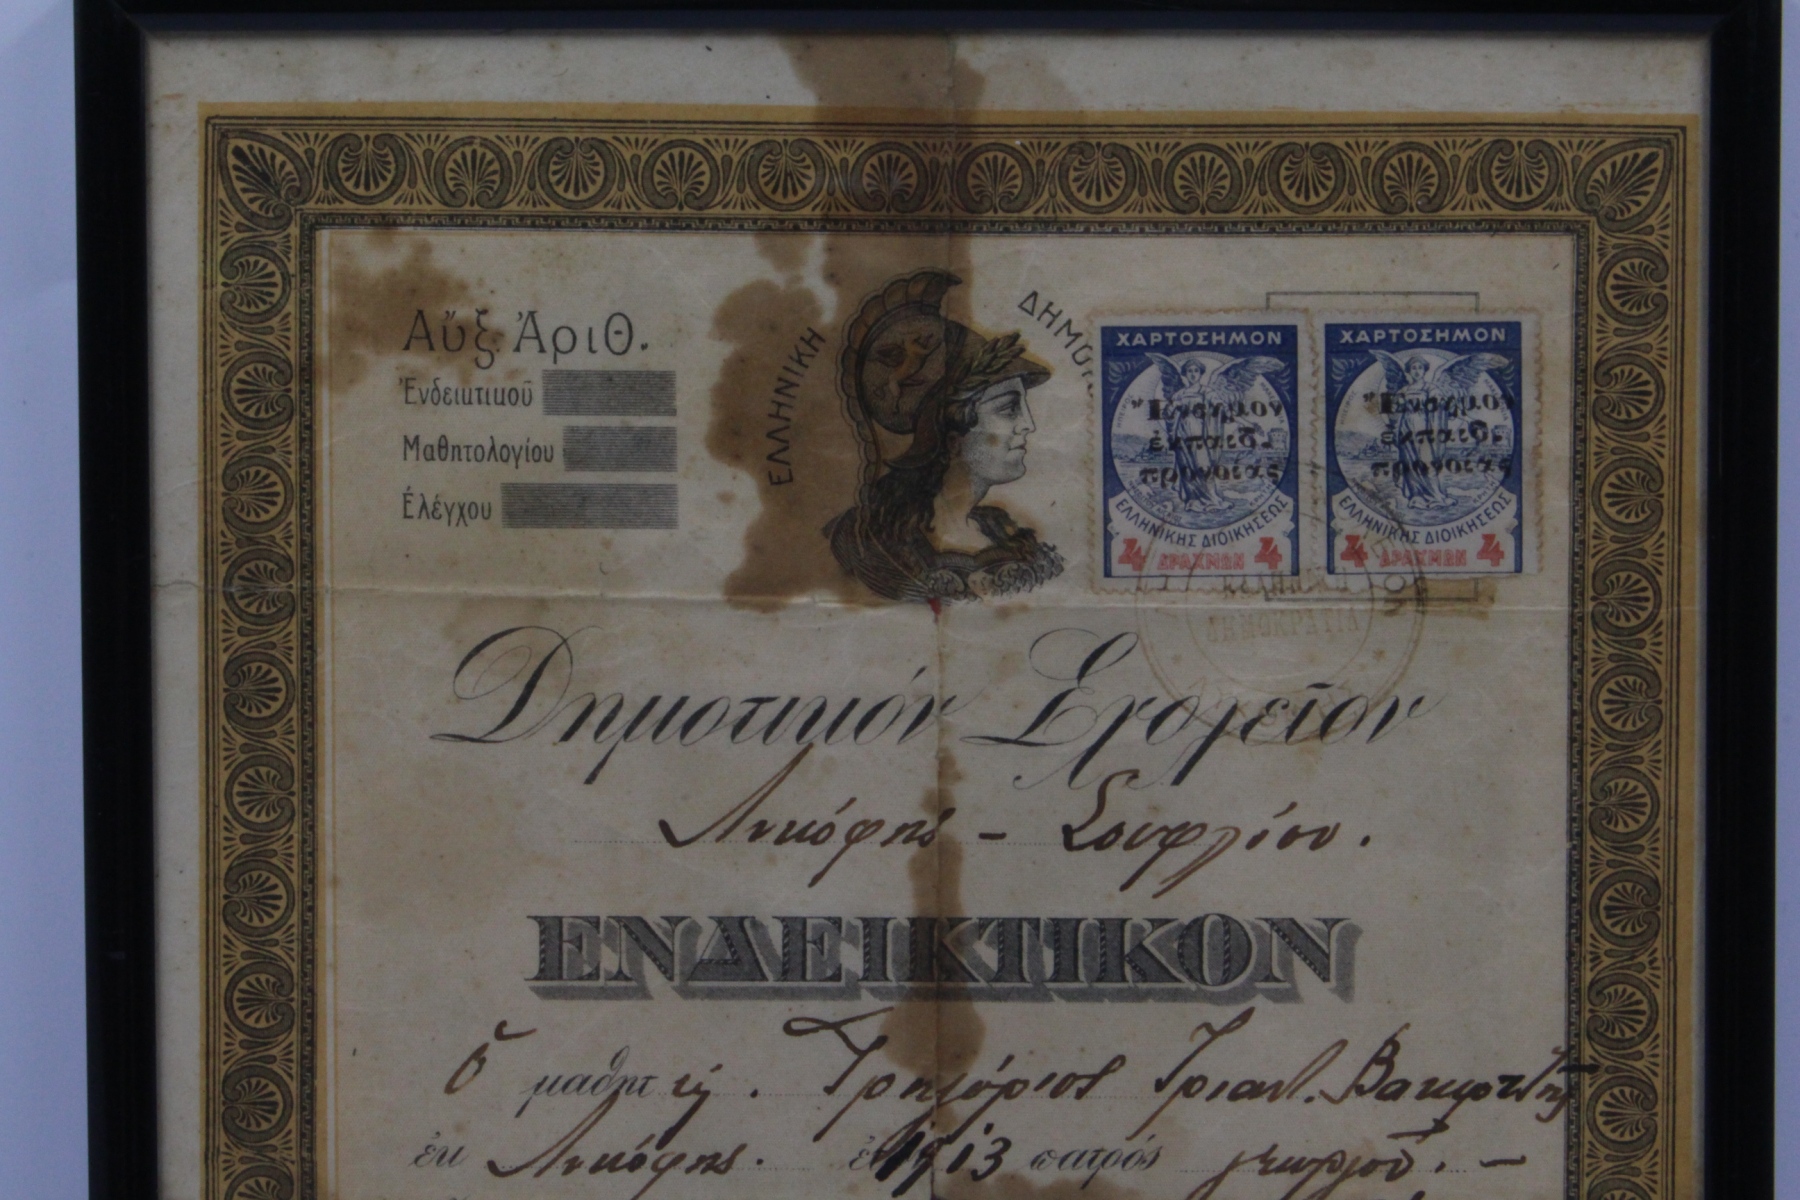 Αὔξ. Ἀριθ.
Ἐνδεικτικοῦ
Μαθητολογίου
Ἐλέγχου
ΕΛΛΗΝΙΚΗ
ΧΑΡΤΟΣΗΜΟΝ
Ἔνσημον
ἐκπαιδ.
προνοίας
ΕΛΛΗΝΙΚΗΣ ΔΙΟΙΚΗΣΕΩΣ
4 ΔΡΑΧΜΩΝ 4
ΧΑΡΤΟΣΗΜΟΝ
Ἔνσημον
ἐκπαιδ.
προνοίας
ΕΛΛΗΝΙΚΗΣ ΔΙΟΙΚΗΣΕΩΣ
4 ΔΡΑΧΜΩΝ 4
ΔΗΜΟΚΡΑΤΙΑ
Δημοτικόν Σχολεῖον
Λυκόφης - Σουφλίου.
ΕΝΔΕΙΚΤΙΚΟΝ
Ὁ μαθητής. Γρηγόριος Τριαντ.
ἐκ Λυκόφης. 1913 πατρός γεωργοῦ. -